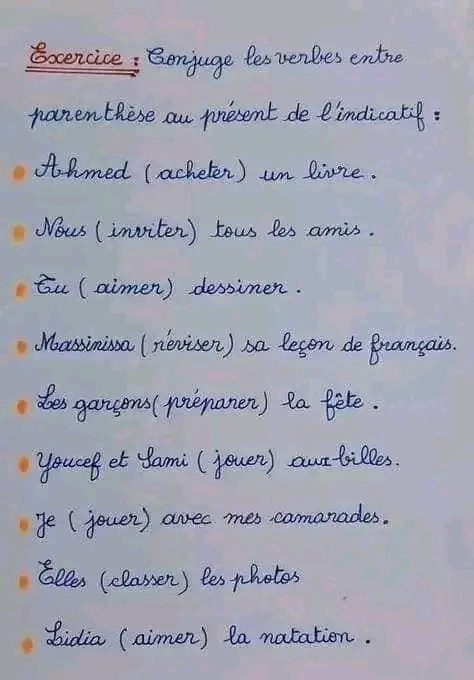 Exercice : Conjugue les verbes entre
parenthèse au présent de l'indicatif :
Ahmed ( acheter ) un livre .
Nous ( inviter ) tous les amis .
Tu ( aimer ) dessiner .
Massinissa ( réviser ) sa leçon de français.
Les garçons ( préparer ) la fête .
Youcef et Sami ( jouer ) aux billes.
Je ( jouer ) avec mes camarades.
Elles ( classer ) les photos
Lidia ( aimer ) la natation .